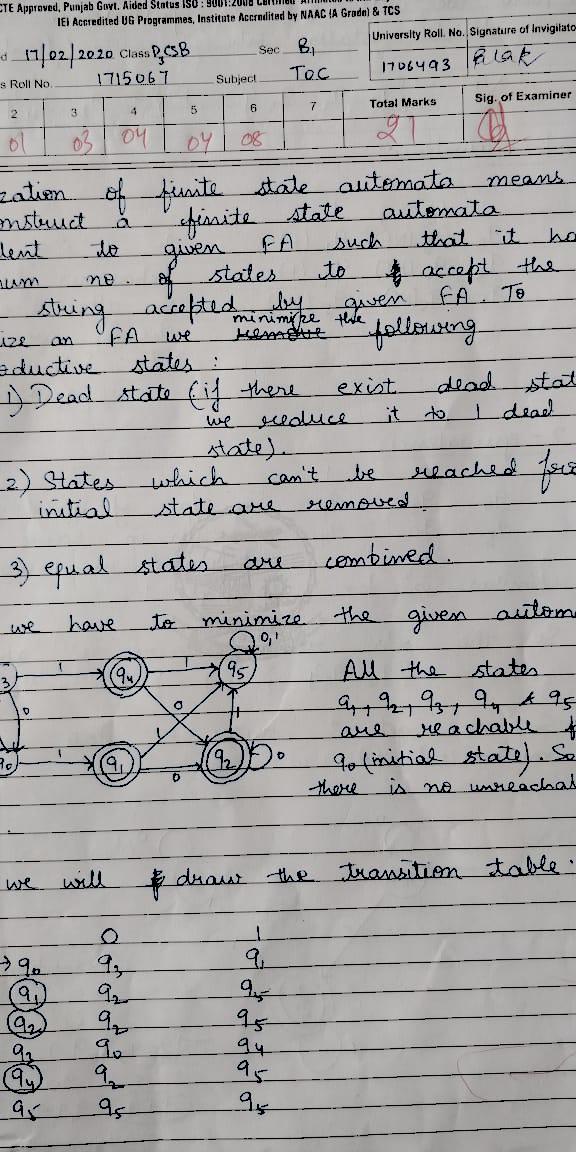 CTE Approved, Punjab Govt. Aided Status ISO : 9001:2008 Certified
IEI Accredited UG Programmes, Institute Accredited by NAAC (A Grade) & TCS
17/02/2020 Class D3CSB Sec B1
University Roll. No. Signature of Invigilato
s Roll No. 1715067 Subject TOC
1706493
2 3 4 5 6 7 Total Marks Sig. of Examiner
01 03 04 04 08 21
zation of finite state automata means
nstruct a finite state automata
lent to given FA such that it ha
num no. of states to accept the
string accepted by given FA. To
ize an FA we minimize the following
oductive states :
1) Dead state (if there exist dead stat
we reduce it to 1 dead
state).
2) States which can't be reached fro
initial state are removed.
3) equal states are combined.
we have to minimize the given autom
0,1
3 1 q4 1 q5 All the states
q1, q2, q3, q4 & q5
0 0 1 1 are reachable f
q0 1 q1 0 q2 0 q0 (initial state). So
there is no unreachab
we will draw the transition table.
0 1
→ q0 q3 q1
q1 q2 q5
q2 q2 q5
q3 q0 q4
q4 q2 q5
q5 q5 q5